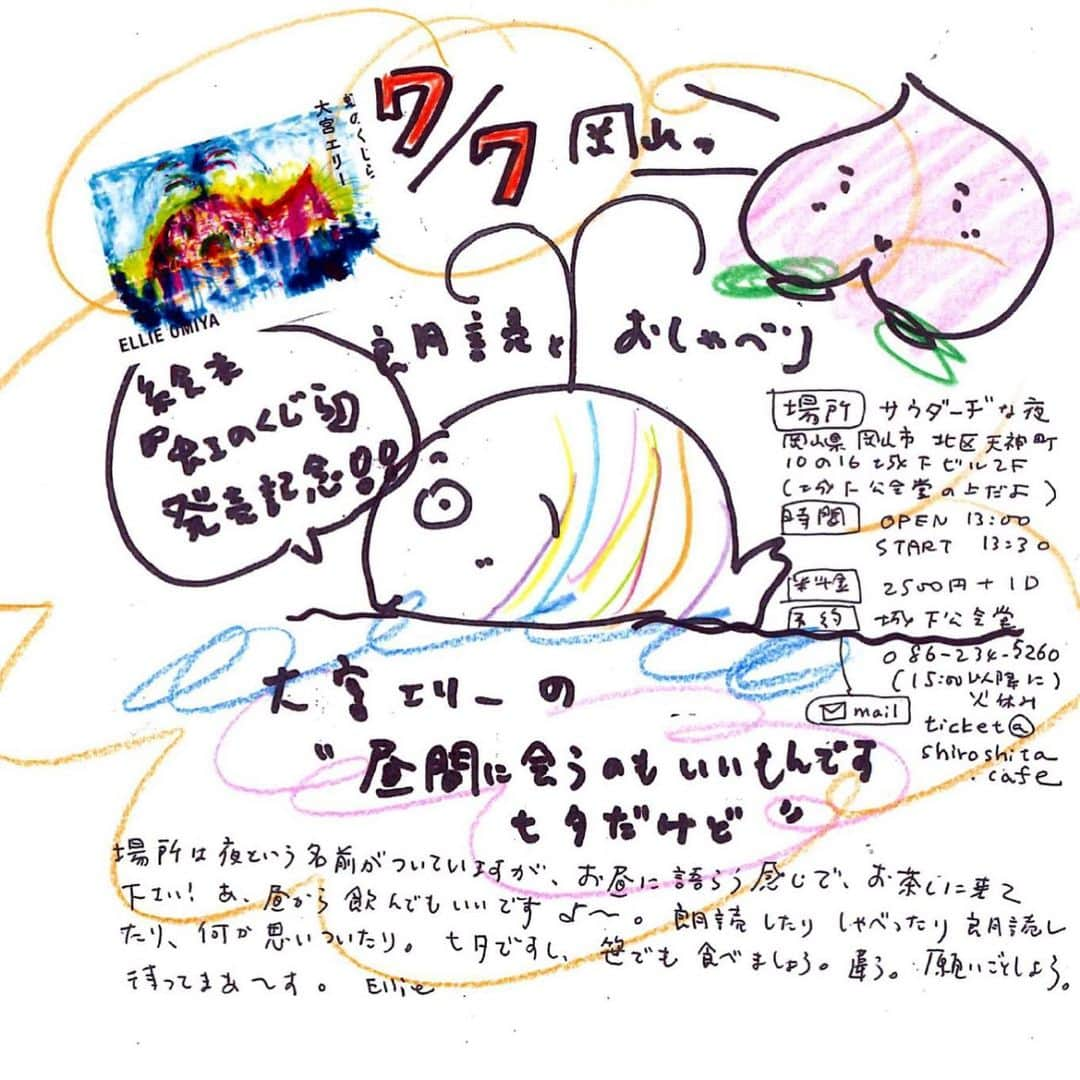 虹のくじら
大宮エリー
ELLIE OMIYA
7/7 岡山っ
朗読と おしゃべり
絵本
『虹のくじら』
発売記念!!
場所 サウダーヂな夜
岡山県 岡山市 北区天神町
10の16 城下ビル2F
(城下公会堂の上だよ)
時間 OPEN 13:00
START 13:30
料金 2500円+1D
予約 城下公会堂
086-234-5260
(15:00以降に)
火休み
mail
ticket@
shiroshita
.cafe
大宮エリーの
"昼間に会うのもいいもんです
七夕だけど"
場所は夜という名前がついていますが、お昼に語らう感じで、お茶しに来て
下さい! あ、昼から飲んでもいいですよ〜。朗読したり しゃべったり 朗読し
たり、何か思いついたり。七夕ですし、笹でも食べましょう。違う。願いごとしよう。
待ってまあ〜す。 Ellie